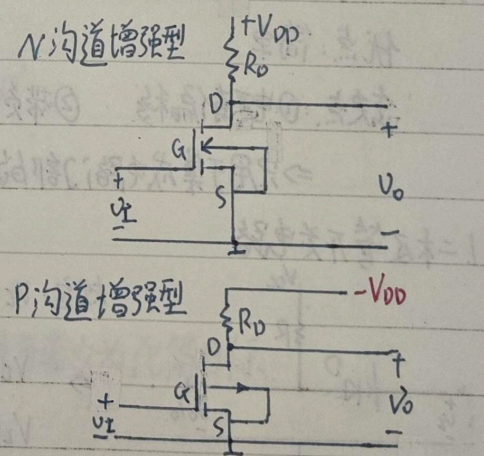 N沟道增强型
+VDD
RD
D
G
S
+
VI
-
+
Vo
-
P沟道增强型
-VDD
RD
D
G
S
+
VI
-
+
Vo
-